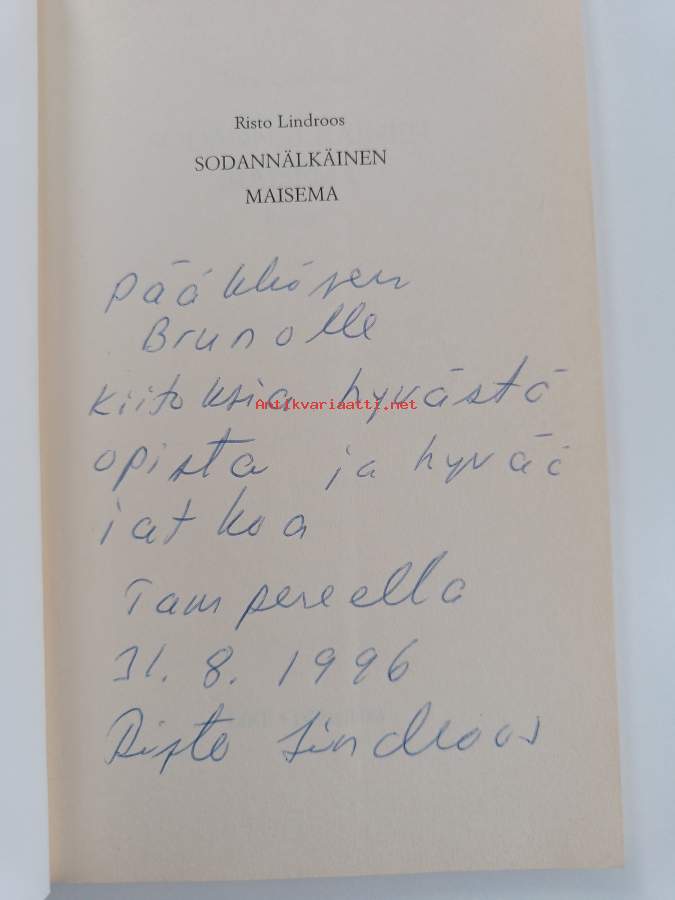 Risto Lindroos
SODANNÄLKÄINEN
MAISEMA
Pääkkösen
Brunolle
kiitoksia hyvästä
Antikvariaatti.net
opista ja hyvää
jatkoa
Tampereella
31.8.1996
Risto Lindroos